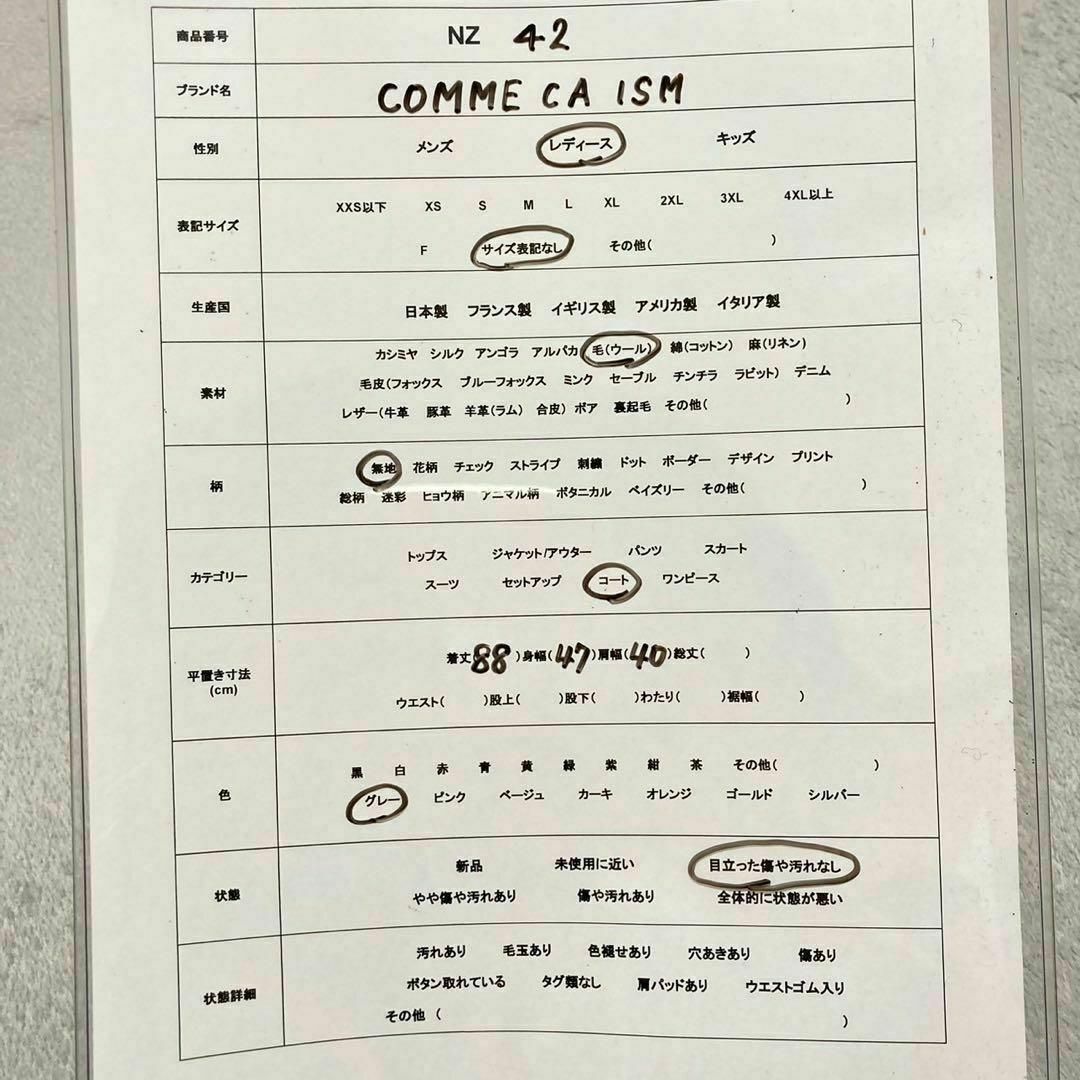 商品番号 NZ 42
ブランド名 COMME CA ISM
性別 メンズ レディース キッズ
XXS以下 XS S M L XL 2XL 3XL 4XL以上
表記サイズ
F サイズ表記なし その他( )
生産国 日本製 フランス製 イギリス製 アメリカ製 イタリア製
カシミヤ シルク アンゴラ アルパカ 毛(ウール) 綿(コットン) 麻(リネン)
素材 毛皮(フォックス ブルーフォックス ミンク セーブル チンチラ ラビット) デニム
レザー(牛革 豚革 羊革(ラム) 合皮) ボア 裏起毛 その他( )
柄 無地 花柄 チェック ストライプ 刺繍 ドット ボーダー デザイン プリント
総柄 迷彩 ヒョウ柄 アニマル柄 ボタニカル ペイズリー その他( )
トップス ジャケット/アウター パンツ スカート
カテゴリー スーツ セットアップ コート ワンピース
着丈88)身幅(47)肩幅(40)総丈( )
平置き寸法
(cm)
ウエスト( )股上( )股下( )わたり( )裾幅( )
黒 白 赤 青 黄 緑 紫 紺 茶 その他( )
色 グレー ピンク ベージュ カーキ オレンジ ゴールド シルバー
新品 未使用に近い 目立った傷や汚れなし
状態 やや傷や汚れあり 傷や汚れあり 全体的に状態が悪い
汚れあり 毛玉あり 色褪せあり 穴あきあり 傷あり
状態詳細 ボタン取れている タグ類なし 肩パッドあり ウエストゴム入り
その他 ( )